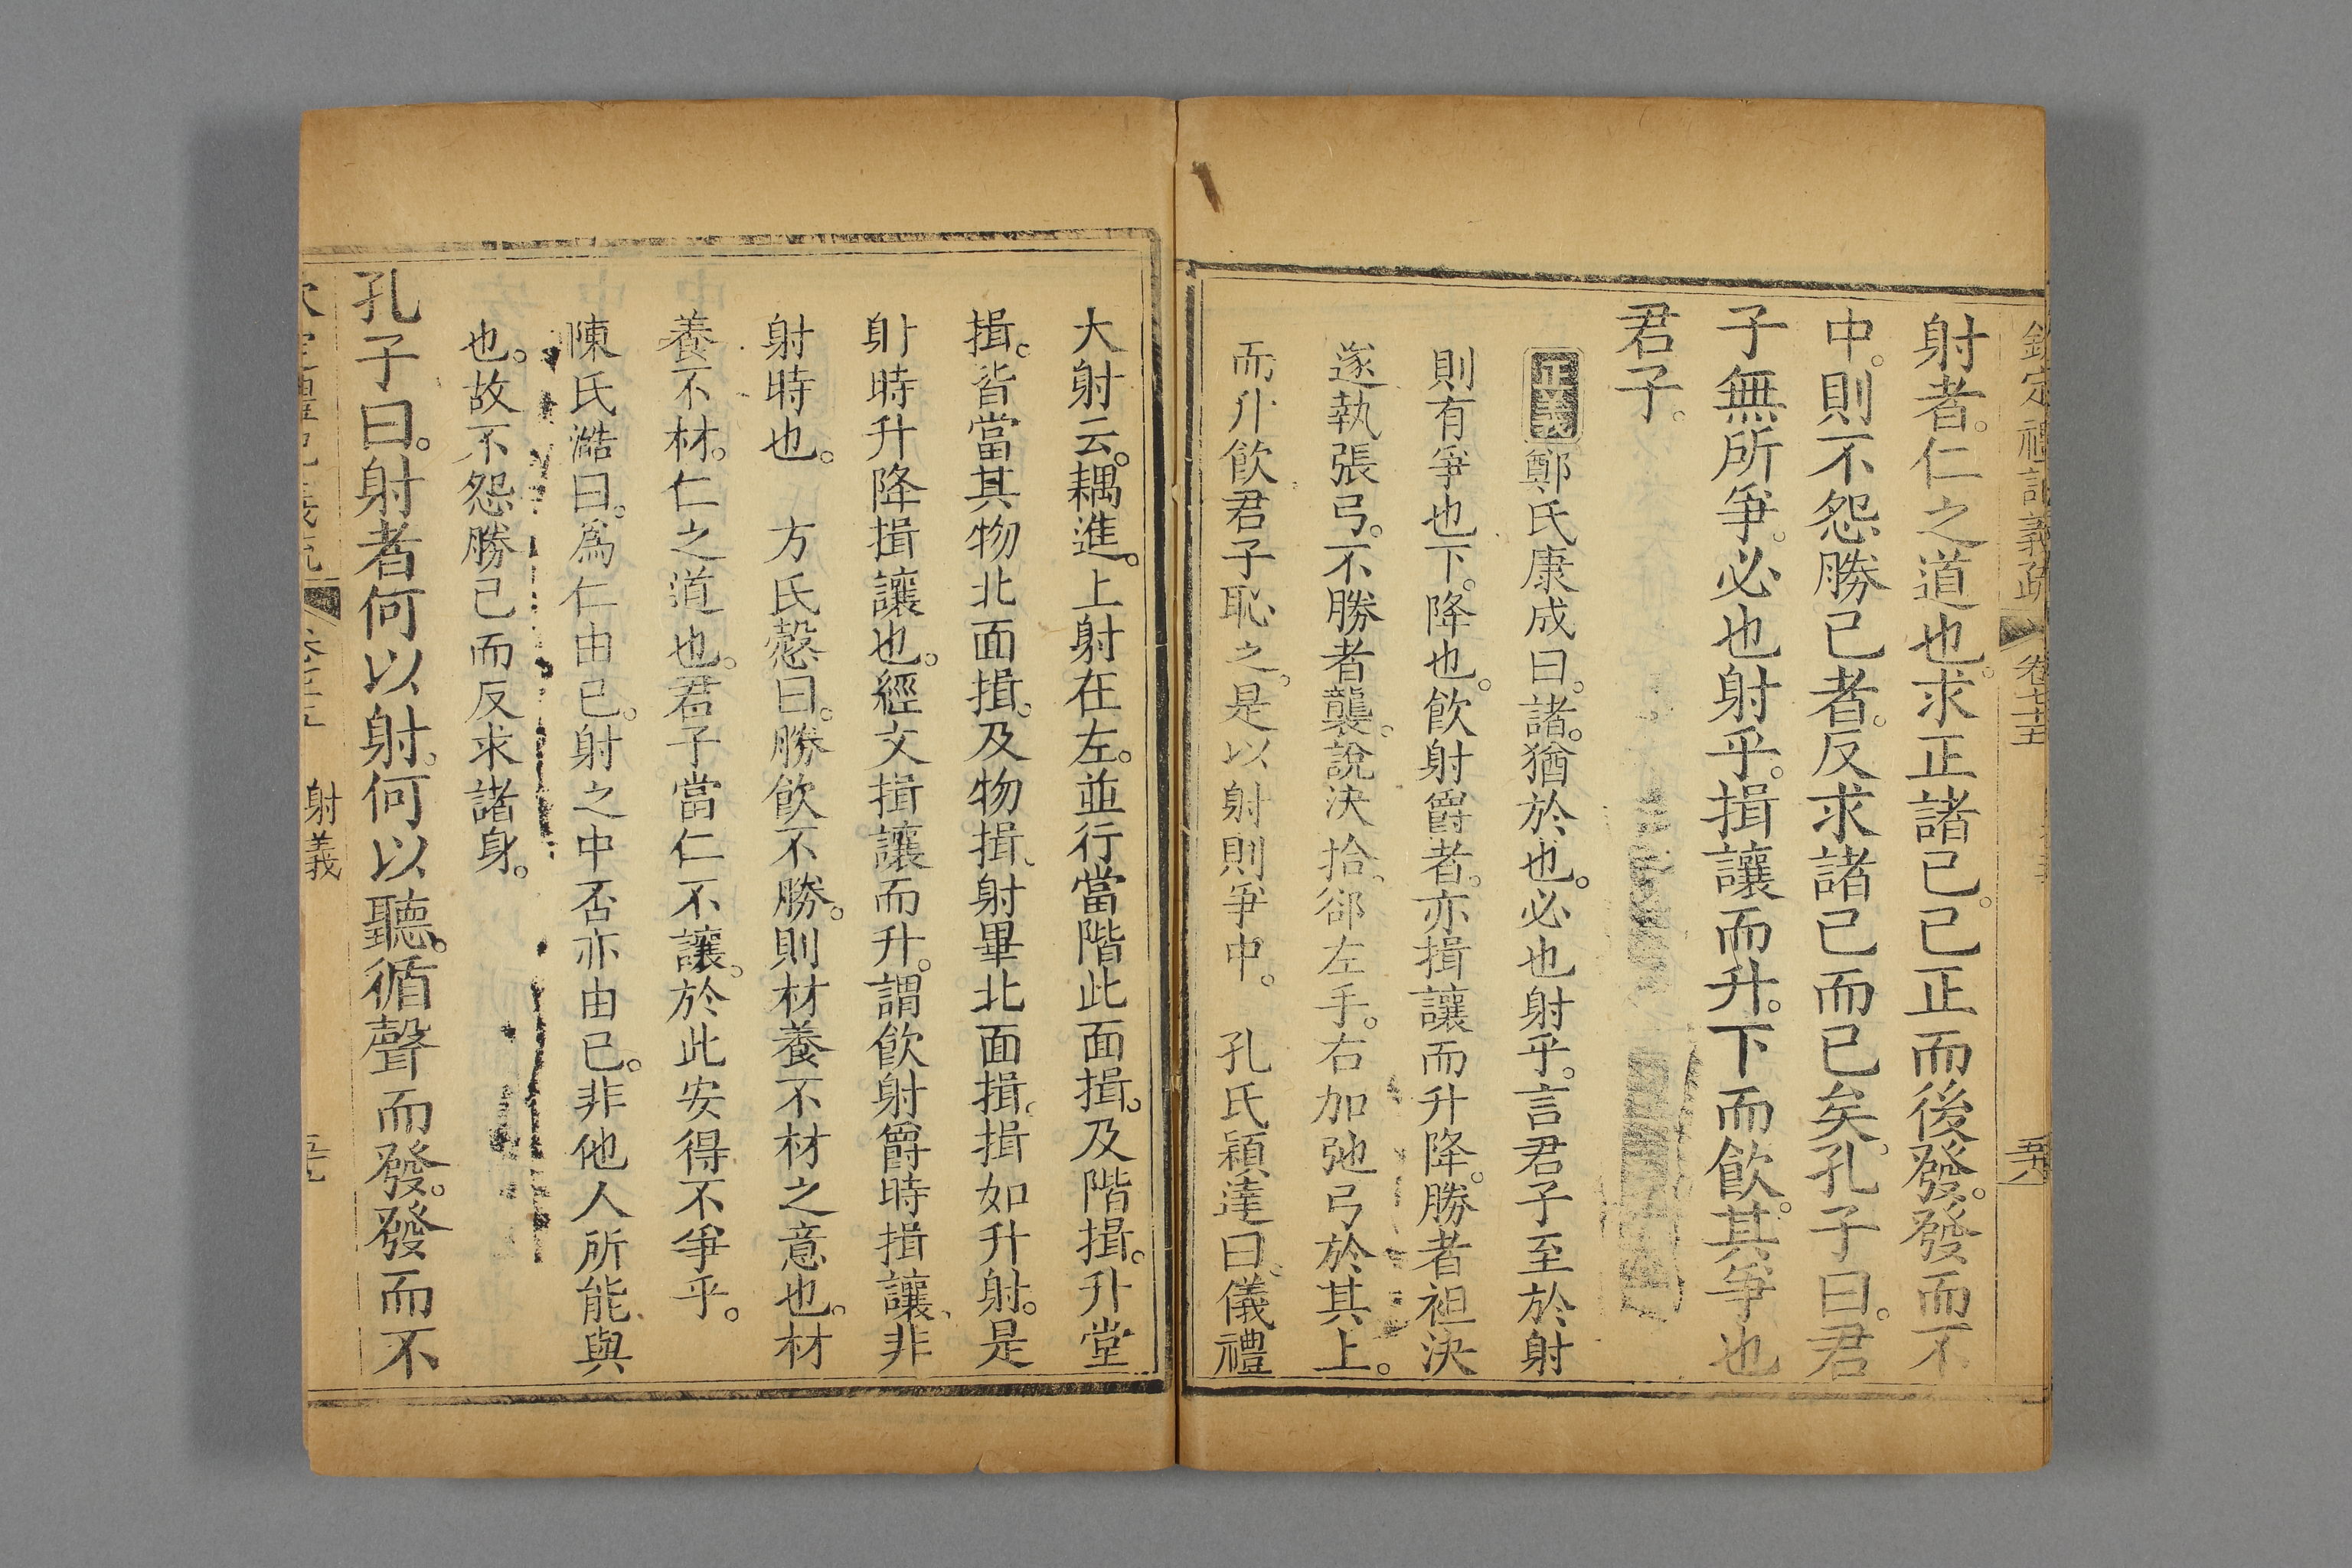 欽定禮記義疏 卷七十五
射者。仁之道也。求正諸己。己正而後發。發而不
中。則不怨勝己者。反求諸己而已矣。孔子曰。君
子無所爭。必也射乎。揖讓而升。下而飲。其爭也
君子。
正義 鄭氏康成曰。諸。猶於也。必也射乎。言君子至於射
則有爭也。下。降也。飲射爵者。亦揖讓而升降。勝者袒決
遂執張弓。不勝者襲。說決拾、郤左手。右加弛弓於其上。
而升飲君子恥之。是以射則爭中。 孔氏穎達曰。儀禮
大射云。耦進。上射在左。並行當階北面揖。及階揖。升堂
揖。皆當其物北面揖。及物揖、射畢北面揖。揖如升射。是
射時升降揖讓也。經文揖讓而升。謂飲射爵時揖讓、非
射時也。 方氏慤曰。勝飲不勝。則材養不材之意也。材
養不材。仁之道也。君子當仁不讓。於此安得不爭乎。
陳氏澔曰。為仁由己。射之中否亦由己。非他人所能與
也。故不怨勝己而反求諸身。
孔子曰。射者何以射。何以聽。循聲而發。發而不
射義